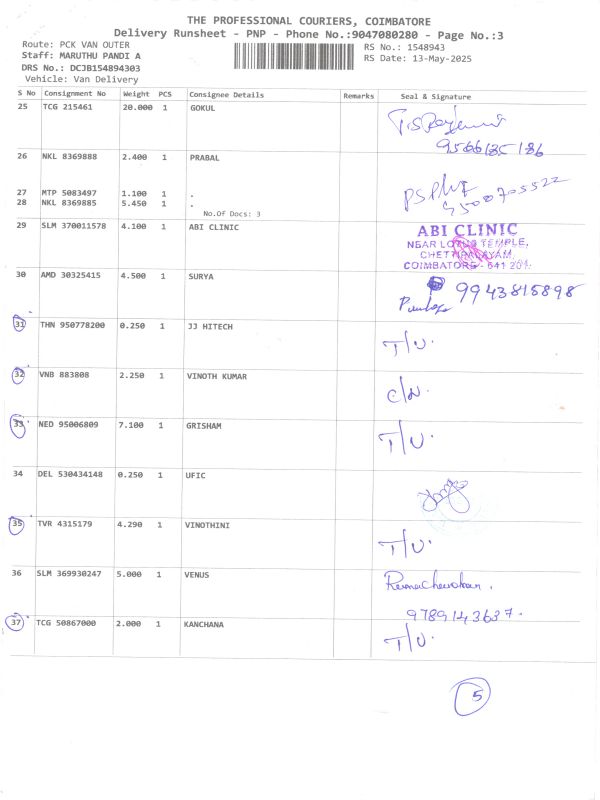 THE PROFESSIONAL COURIERS, COIMBATORE
Delivery Runsheet - PNP - Phone No.:9047080280 - Page No.:3
Route: PCK VAN OUTER
RS No.: 1548943
Staff: MARUTHU PANDI A
RS Date: 13-May-2025
DRS No.: DCJB154894303
Vehicle: Van Delivery
S No Consignment No Weight PCS Consignee Details Remarks Seal & Signature
25 TCG 215461 20.000 1 GOKUL
26 NKL 8369888 2.400 1 PRABAL
27 MTP 5083497 1.100 1 .
28 NKL 8369885 5.450 1 .
No.Of Docs: 3
29 SLM 370011578 4.100 1 ABI CLINIC
ABI CLINIC
NEAR LOTUS TEMPLE,
CHETTIPALAYAM,
COIMBATORE - 641 201.
30 AMD 30325415 4.500 1 SURYA
9943815898
31 THN 950778200 0.250 1 JJ HITECH
T/U.
32 VNB 883808 2.250 1 VINOTH KUMAR
33 NED 95006809 7.100 1 GRISHAM
T/U.
34 DEL 530434148 0.250 1 UFIC
35 TVR 4315179 4.290 1 VINOTHINI
T/U.
36 SLM 369930247 5.000 1 VENUS
9789143637.
37 TCG 50867000 2.000 1 KANCHANA
T/U.
5